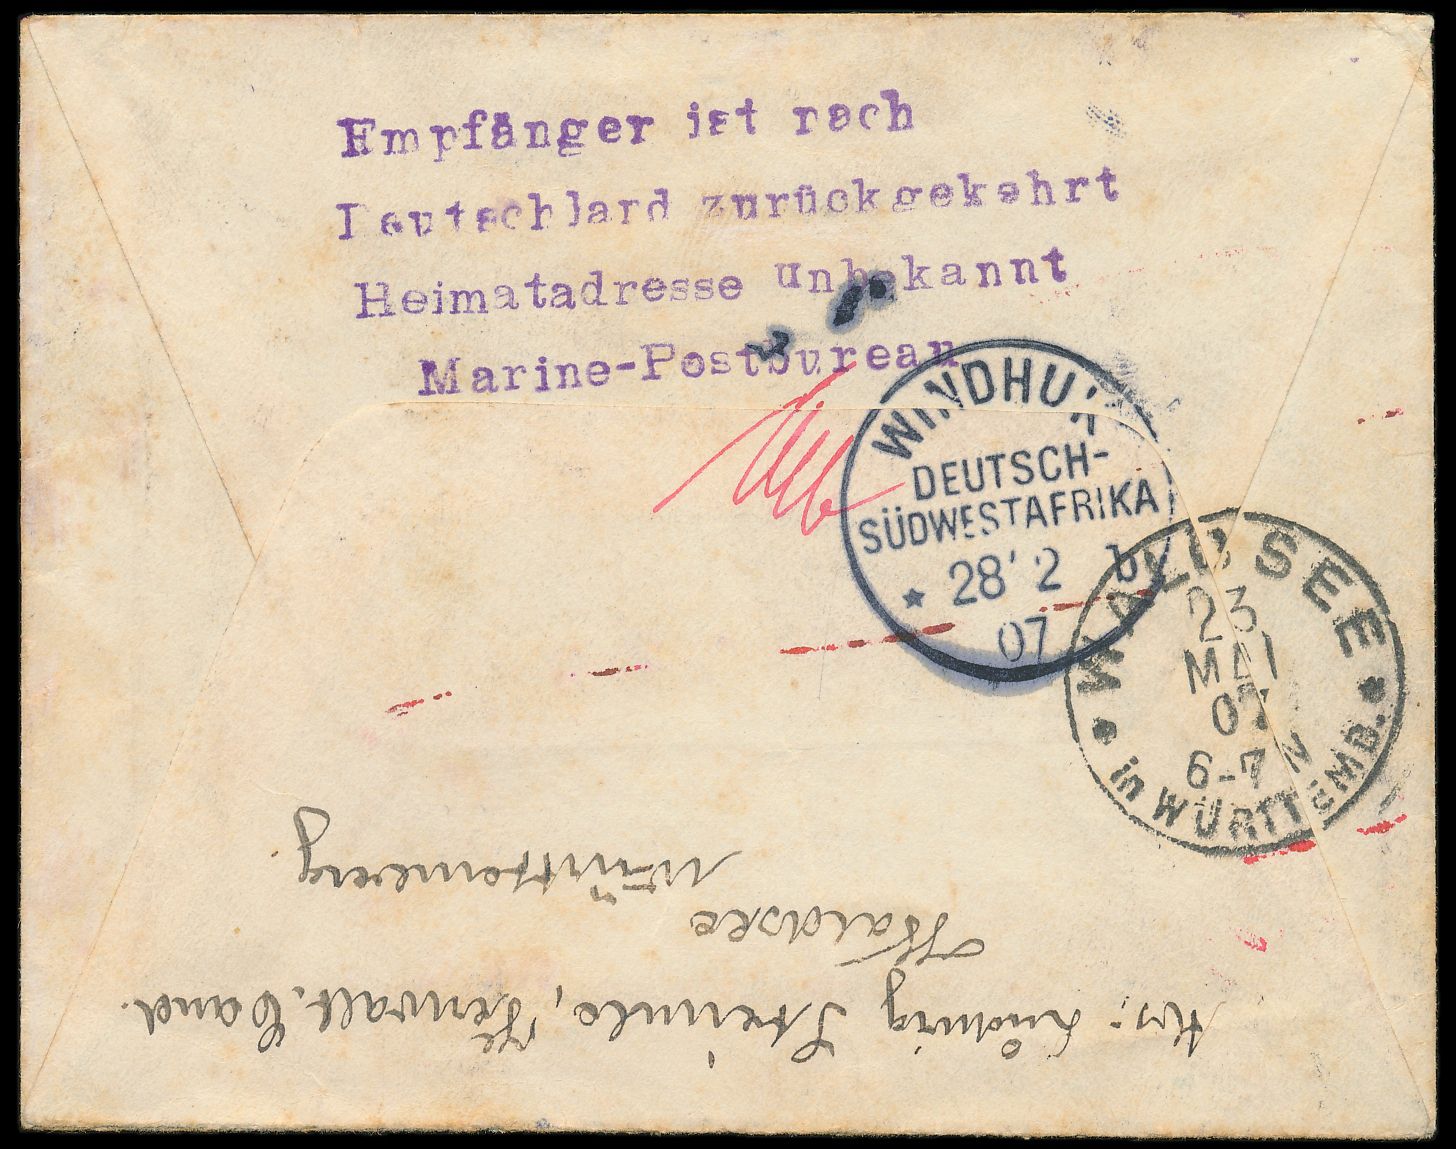 Empfänger ist nach
Deutschland zurückgekehrt
Heimatadresse unbekannt
Marine-Postbureau
WINDHUK
DEUTSCH-
SÜDWESTAFRIKA
28 2 b
07
WALDSEE
23
MAI
07
6-7 N
in WÜRTTEMB.
Ludwig Steinle, Verwalt. Cand.
Waldsee
Württemberg